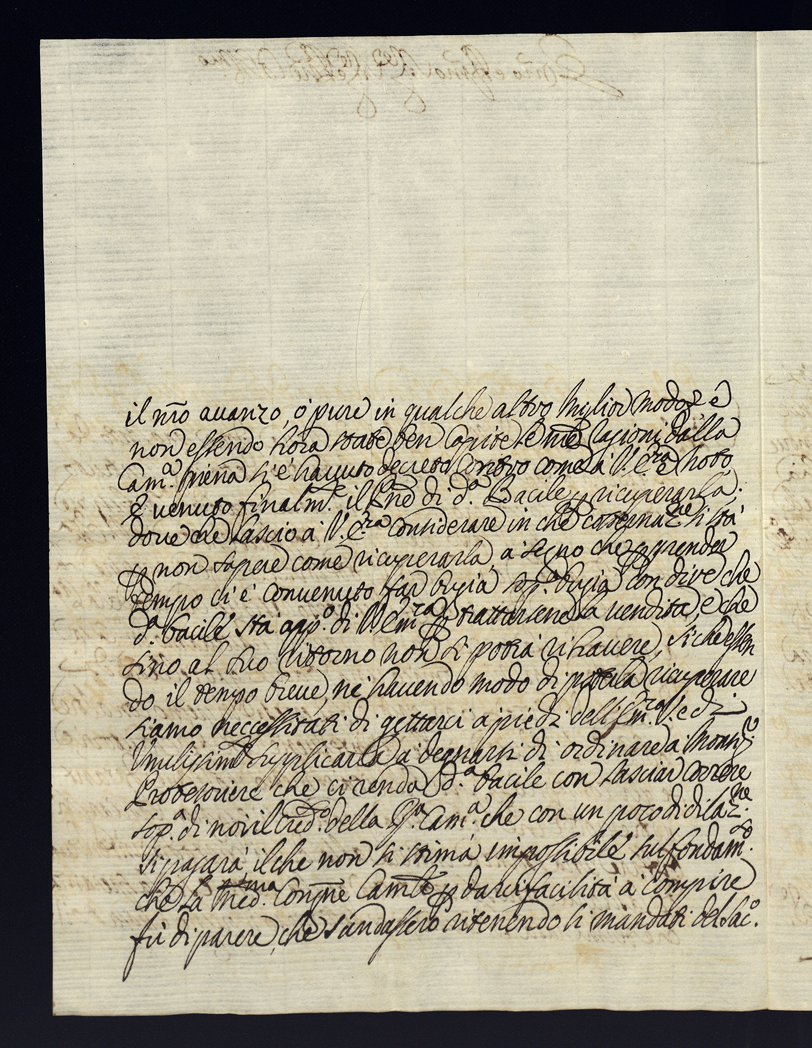 il nr̃o auanzo, ò pure in qualche altro miglior modo; e
non essendo hora state ben capite le nr̃e ragioni dalla
Cam.ª piena si è hauuto decreto contro come à V. E.ᶻᵃ noto
è venuto finalm.ᵉ il di d.ª Bacile p ricuperarla
doue che lascio à V. E.ᶻᵃ considerare in che si stà
p non sapere come ricuperarla, à segno che p prender
tempo ci è conuenuto far bugia sop.ª bugia con dire che
d.ª bacile stà app.º di p trattarsene la vendita, e che
sino al suo ritorno non si potrà rihauere, siche essen
do il tempo breue, nè hauendo modo di poterla ricuperare
siamo neccessitati di gettarci a piedi dell' V. e di
Vmilissim.ᵉ supplicarla à degnarsi di ordinare a Mons.ʳ
che ci renda d.ª bacile con lasciar correre
sop.ª di noi il cred.º della R.ª Cam.ª che con un poco di dilaz.ⁿᵉ
si pagarà il che non si stima impossibile sul fondam.ᵗᵒ
che la med.ᵐᵃ p darci facilità à compire
fù di parere, che s'andassero ritenendo li mandati del Sac.º